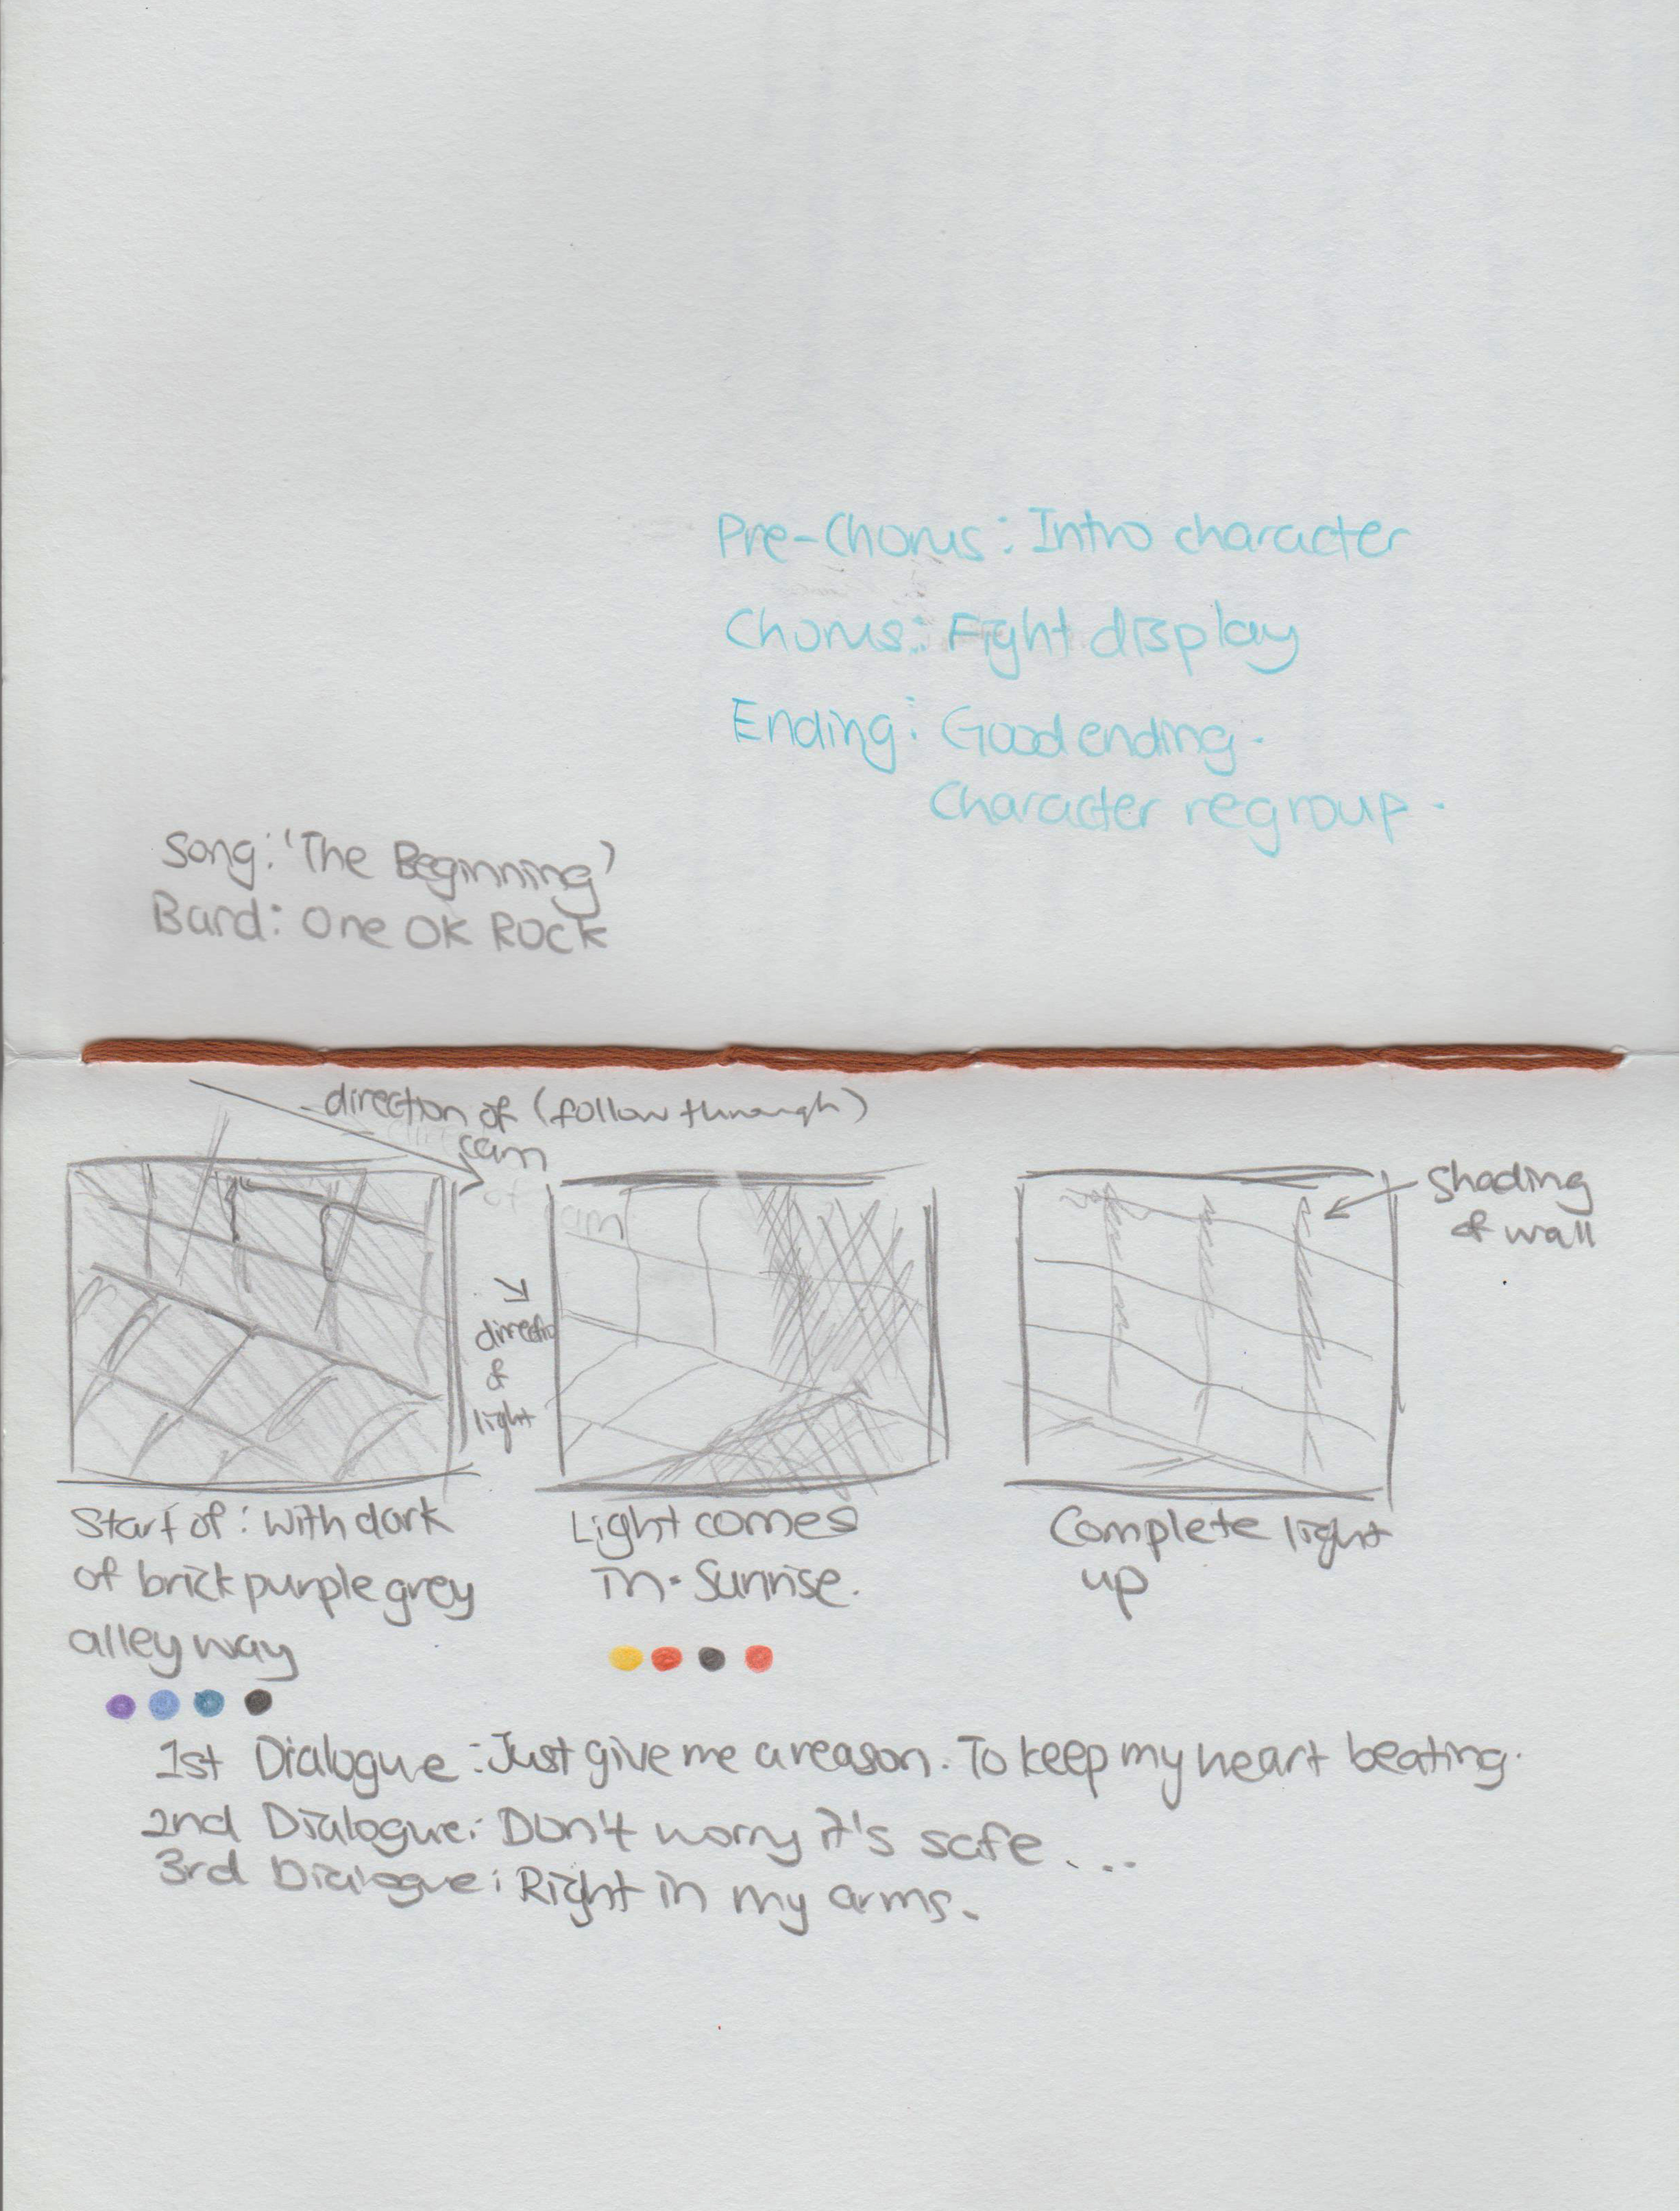 Pre-Chorus: Intro character
Chorus: Fight display
Ending: Good ending.
Character regroup.
Song: 'The Beginning'
Band: One OK Rock
direction of (follow through)
cam
Shading
of wall
direction
of
light
Start of: With dark
of brick purple grey
alley way
Light comes
in. Sunrise.
Complete light
up
1st Dialogue: Just give me a reason. To keep my heart beating.
2nd Dialogue: Don't worry it's safe...
3rd Dialogue: Right in my arms.